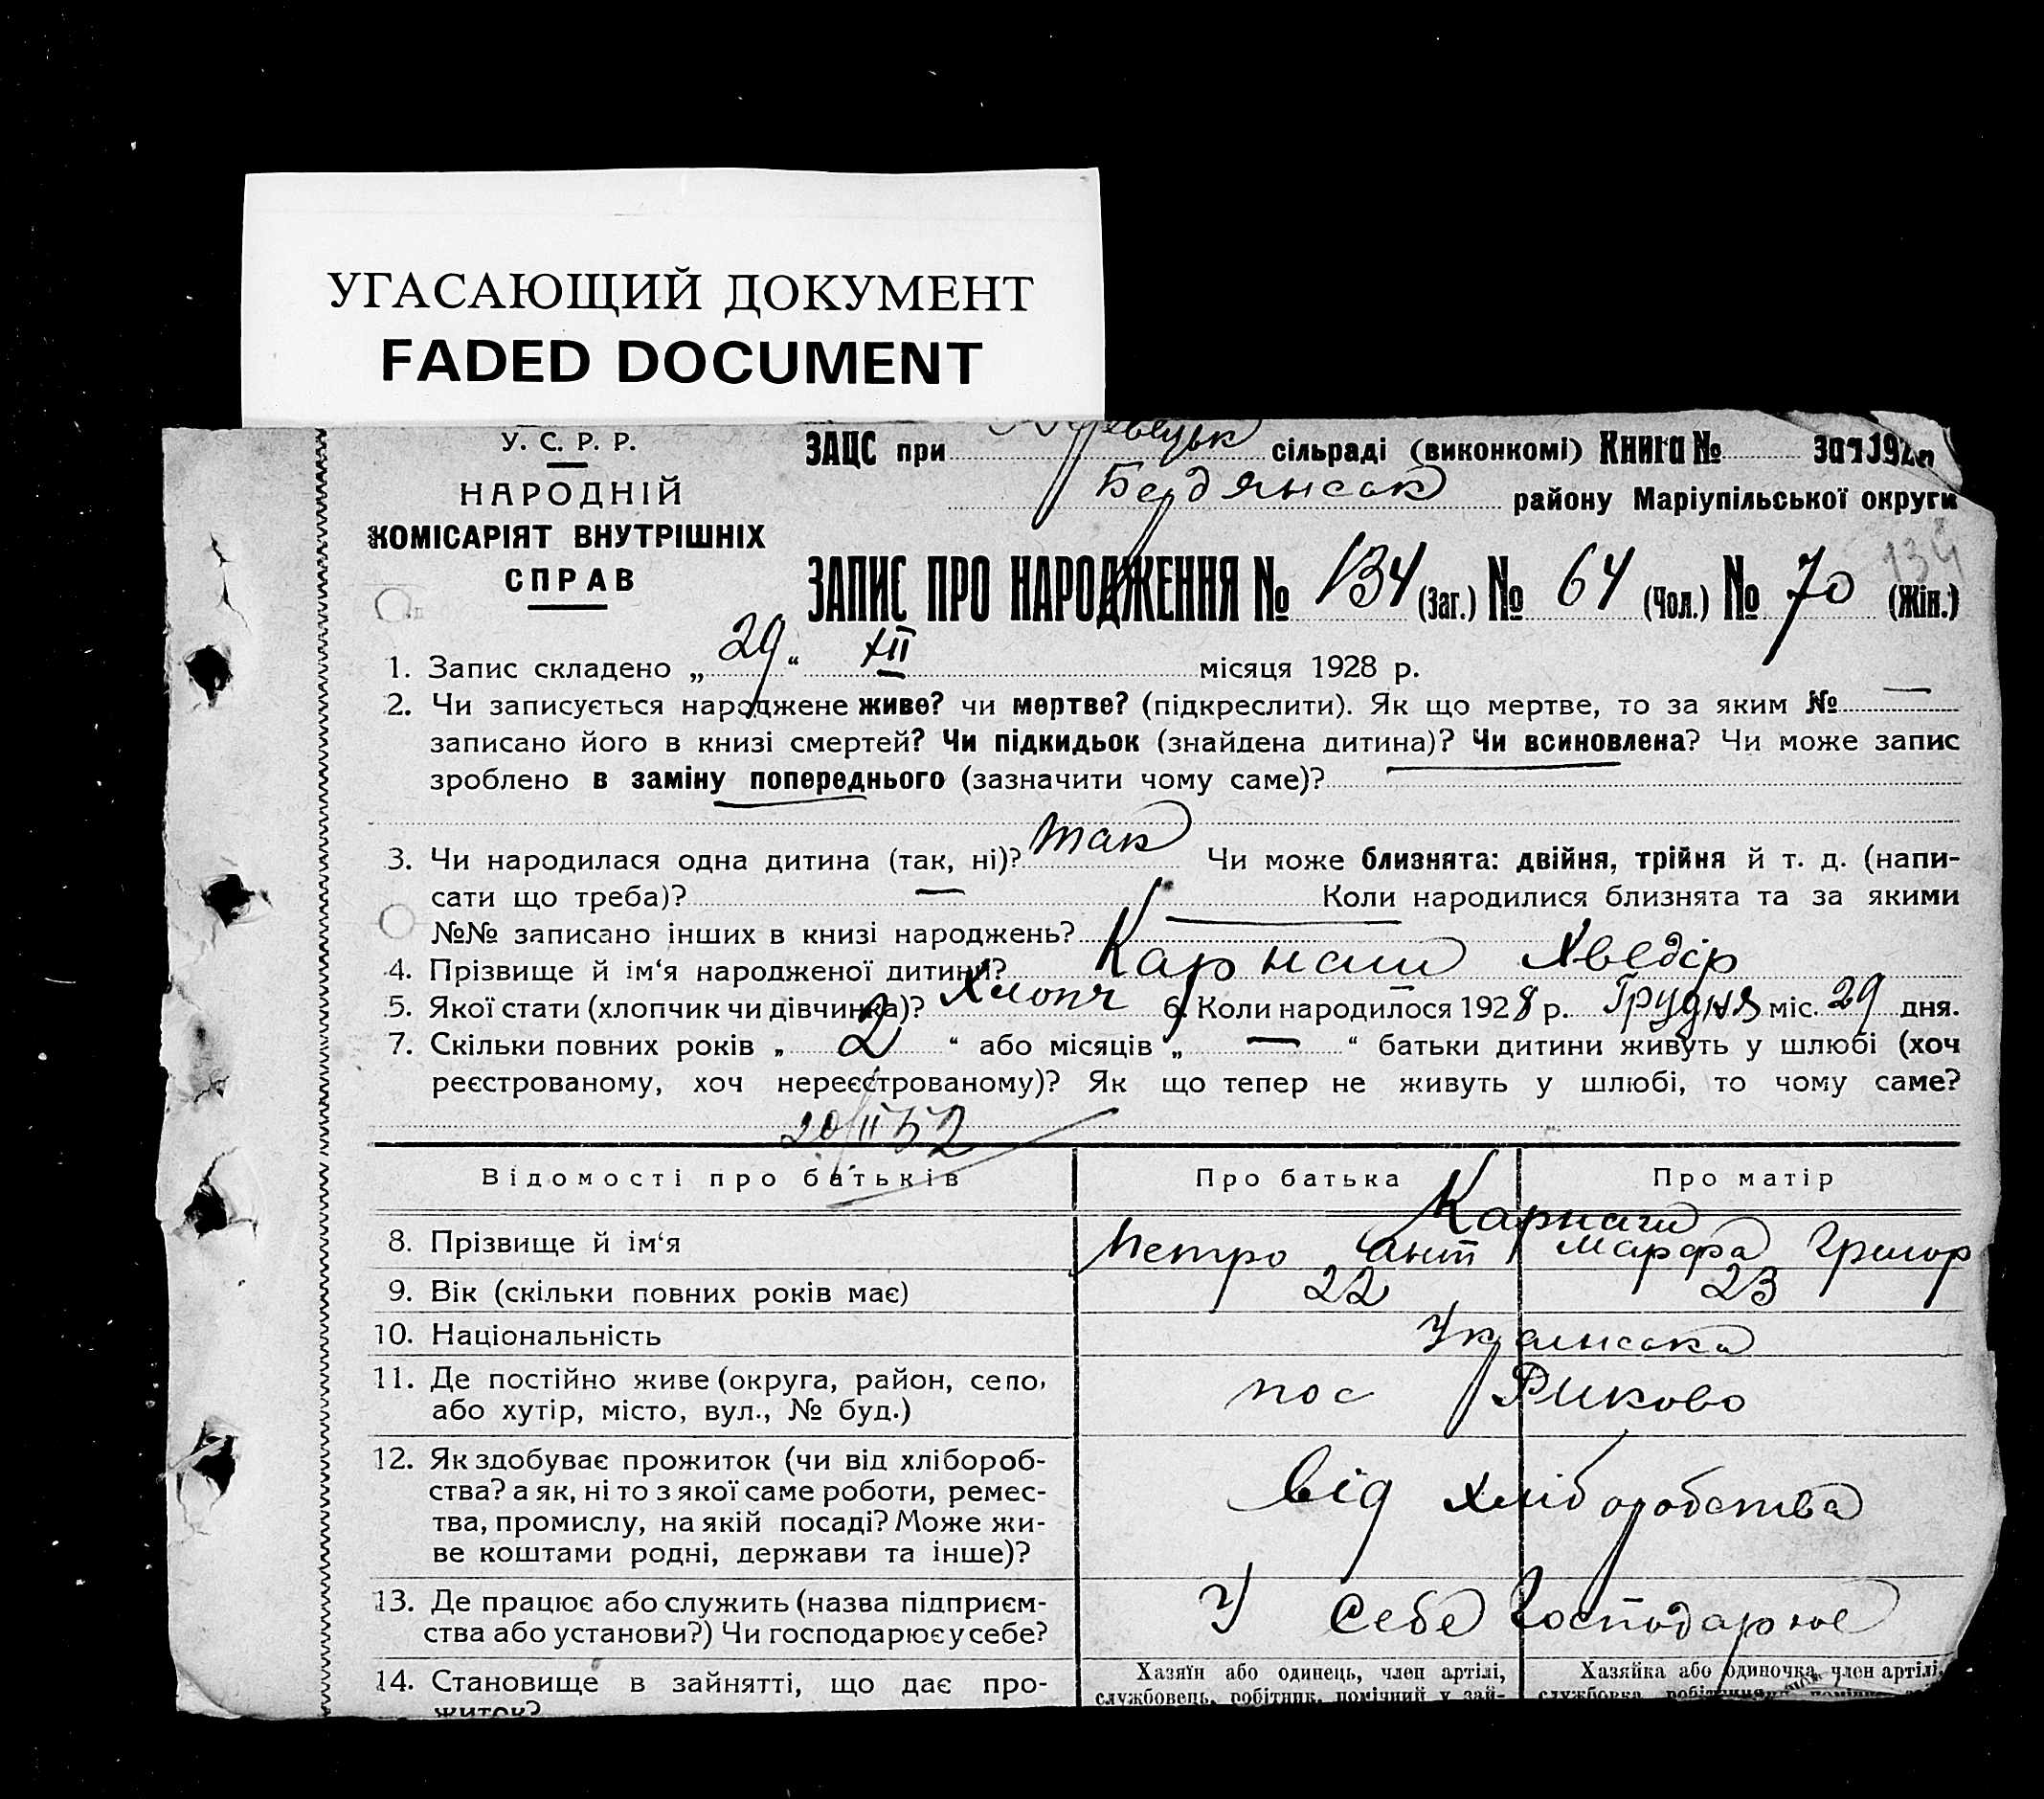 УГАСАЮЩИЙ ДОКУМЕНТ
FADED DOCUMENT
У. С. Р. Р.
НАРОДНІЙ
КОМІСАРІЯТ ВНУТРІШНІХ
СПРАВ
ЗАЦС при сільраді (виконкомі) Книга №
Бердянськ району Маріупільської округи
134
ЗАПИС ПРО НАРОДЖЕННЯ № 134 (Заг.) № 64 (Чол.) № 70 (Жін.)
1. Запис складено „ 29 “ XII місяця 1928 р.
2. Чи записується народжене живе? чи мертве? (підкреслити). Як що мертве, то за яким № —
записано його в книзі смертей? Чи підкидьок (знайдена дитина)? Чи всиновлена? Чи може запис
зроблено в заміну попереднього (зазначити чому саме)?
3. Чи народилася одна дитина (так, ні)? так Чи може близнята: двійня, трійня й т. д. (напи-
сати що треба)? — Коли народилися близнята та за якими
№№ записано інших в книзі народжень?
4. Прізвище й ім‘я народженої дитини? Карнаш Хведір
5. Якої стати (хлопчик чи дівчинка)? Хлопч 6. Коли народилося 1928 р. Грудня міс. 29 дня.
7. Скільки повних років „ 2 “ або місяців „ — “ батьки дитини живуть у шлюбі (хоч
реєстрованому, хоч нереєстрованому)? Як що тепер не живуть у шлюбі, то чому саме?
20/II 52
Відомості про батьків Про батька Про матір
Карнаш
8. Прізвище й ім‘я Петро Ант Марфа Григор
9. Вік (скільки повних років має) 22 23
10. Національність Українська
11. Де постійно живе (округа, район, село,
або хутір, місто, вул., № буд.) пос Риково
12. Як здобуває прожиток (чи від хлібороб-
ства? а як, ні то з якої саме роботи, ремес-
тва, промислу, на якій посаді? Може жи-
ве коштами родні, держави та інше)? Від хліборобства
13. Де працює або служить (назва підприєм-
ства або установи?) Чи господарює у себе? У себе господарює
14. Становище в зайнятті, що дає про-
житок?
Хазяїн або одинець, член артілі,
службовець, робітник, помічний у зай-
Хазяйка або одиночка, член артілі,
службовка